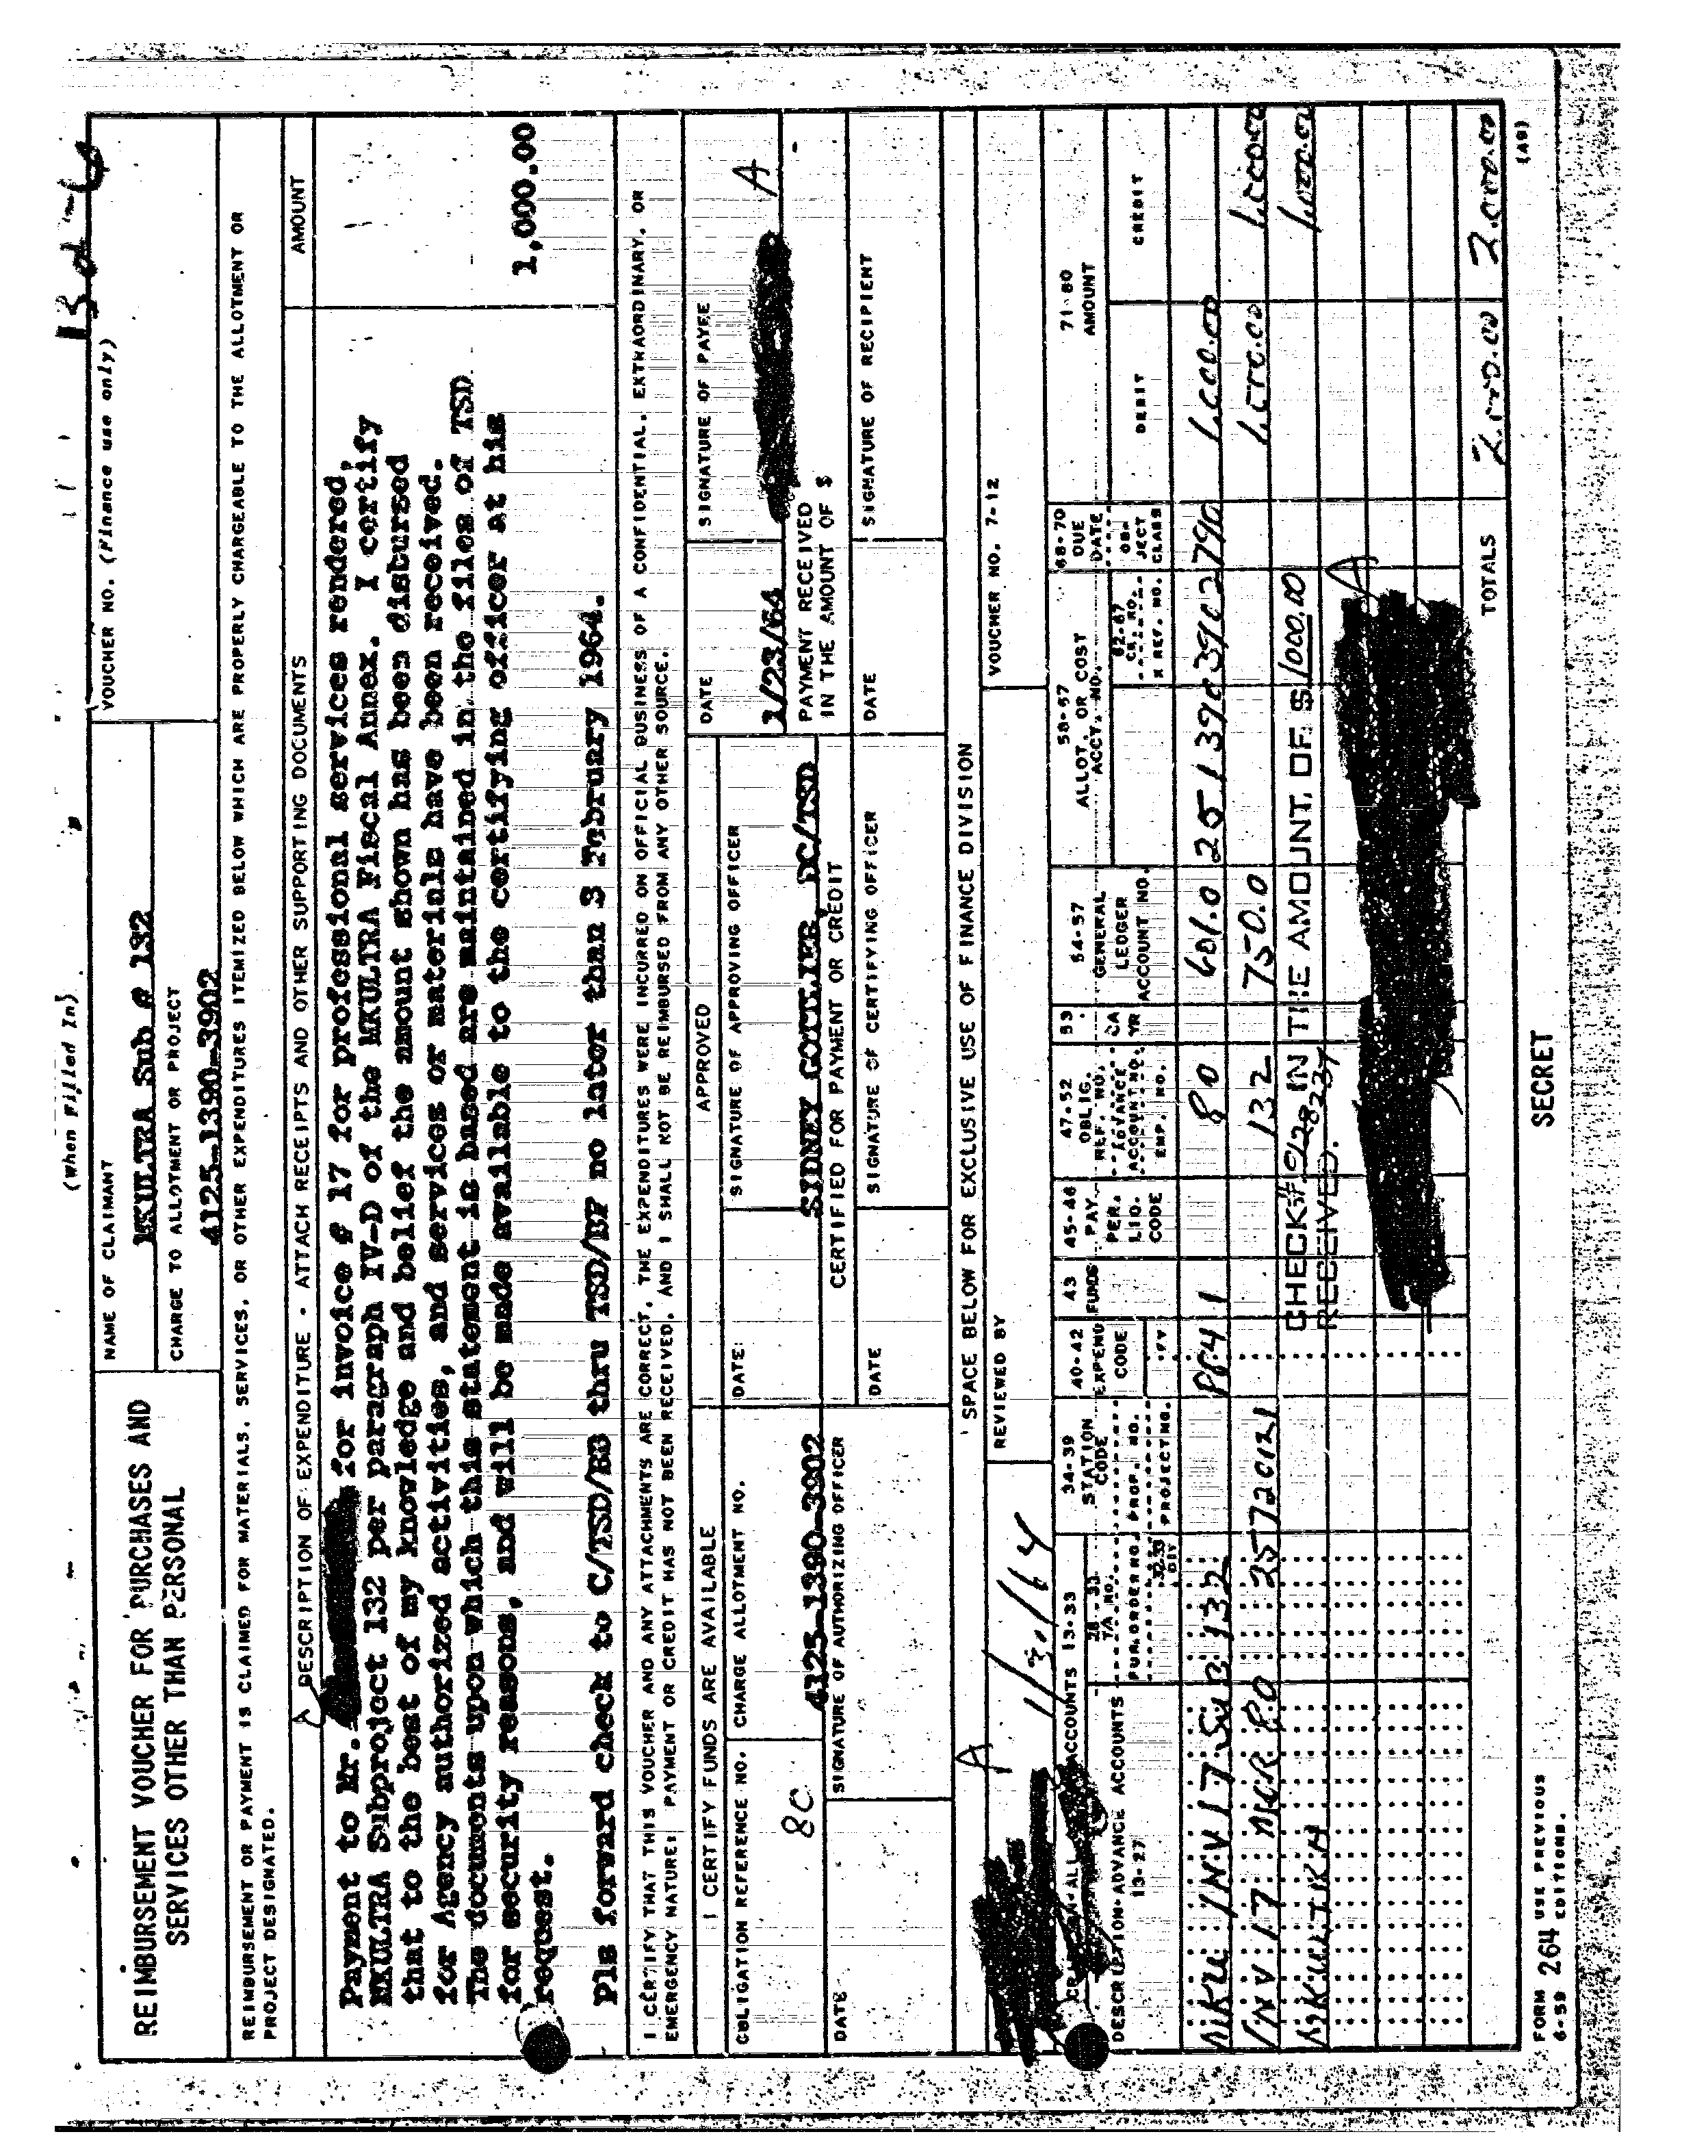 13 d-6
(When Filled In)
REIMBURSEMENT VOUCHER FOR PURCHASES AND
SERVICES OTHER THAN PERSONAL
NAME OF CLAIMANT
MKULTRA Sub # 132
CHARGE TO ALLOTMENT OR PROJECT
4125-1390-3902
VOUCHER NO. (Finance use only)
REIMBURSEMENT OR PAYMENT IS CLAIMED FOR MATERIALS, SERVICES, OR OTHER EXPENDITURES ITEMIZED BELOW WHICH ARE PROPERLY CHARGEABLE TO THE ALLOTMENT OR
PROJECT DESIGNATED.
DESCRIPTION OF EXPENDITURE - ATTACH RECEIPTS AND OTHER SUPPORTING DOCUMENTS
AMOUNT
A
Payment to Mr. for invoice # 17 for professional services rendered,
MKULTRA Subproject 132 per paragraph IV-D of the MKULTRA Fiscal Annex. I certify
that to the best of my knowledge and belief the amount shown has been disbursed
for Agency authorized activities, and services or materials have been received.
The documents upon which this statement is based are maintained in the files of TSD
for security reasons, and will be made available to the certifying officer at his
request.
1,000.00
Pls forward check to C/TSD/BB thru TSD/BF no later than 3 February 1964.
I CERTIFY THAT THIS VOUCHER AND ANY ATTACHMENTS ARE CORRECT, THE EXPENDITURES WERE INCURRED ON OFFICIAL BUSINESS OF A CONFIDENTIAL, EXTRAORDINARY, OR
EMERGENCY NATURE; PAYMENT OR CREDIT HAS NOT BEEN RECEIVED, AND I SHALL NOT BE REIMBURSED FROM ANY OTHER SOURCE.
I CERTIFY FUNDS ARE AVAILABLE
APPROVED
DATE
1/23/64
SIGNATURE OF PAYEE
A
OBLIGATION REFERENCE NO.
80
CHARGE ALLOTMENT NO.
4125-1390-3902
DATE:
SIGNATURE OF APPROVING OFFICER
SIDNEY GOTTLIEB, DC/TSD
PAYMENT RECEIVED
IN THE AMOUNT OF $
DATE
SIGNATURE OF AUTHORIZING OFFICER
CERTIFIED FOR PAYMENT OR CREDIT
DATE
SIGNATURE OF CERTIFYING OFFICER
DATE
SIGNATURE OF RECIPIENT
SPACE BELOW FOR EXCLUSIVE USE OF FINANCE DIVISION
A
REVIEWED BY
VOUCHER NO. 7-12
ACCOUNTS 13-33
DESCRIPTION-ADVANCE ACCOUNTS
13-27
28-33
T/A NO.
PUR.ORDER NO.
34-39
STATION
CODE
PROP. NO.
PROJECT NO.
40-42
EXPEND
CODE
FY
43
FUNDS
45-46
PAY.
PER.
LIQ.
CODE
47-52
OBLIG.
REF. NO.
ADVANCE
ACCOUNT NO.
EMP. NO.
53
CA
YR
54-57
GENERAL
LEDGER
ACCOUNT NO.
58-57
ALLOT. OR COST
ACCT. NO.
62-67
CK. NO.
X REF. NO.
68-70
DUE
DATE
OBJECT
CLASS
71-80
AMOUNT
DEBIT
CREDIT
MKU INV 17 SUB 132 1 80 601.0 25 1390 3902 790 1,000.00
INV 17 132 750.0 1,000.00 1,000.00
MKULTRA 1,000.00
CHECK# IN THE AMOUNT OF $ 1000.00
RECEIVED.
A
TOTALS
2,000.00 2,000.00
FORM 264 USE PREVIOUS
6-59 EDITIONS.
SECRET
(48)